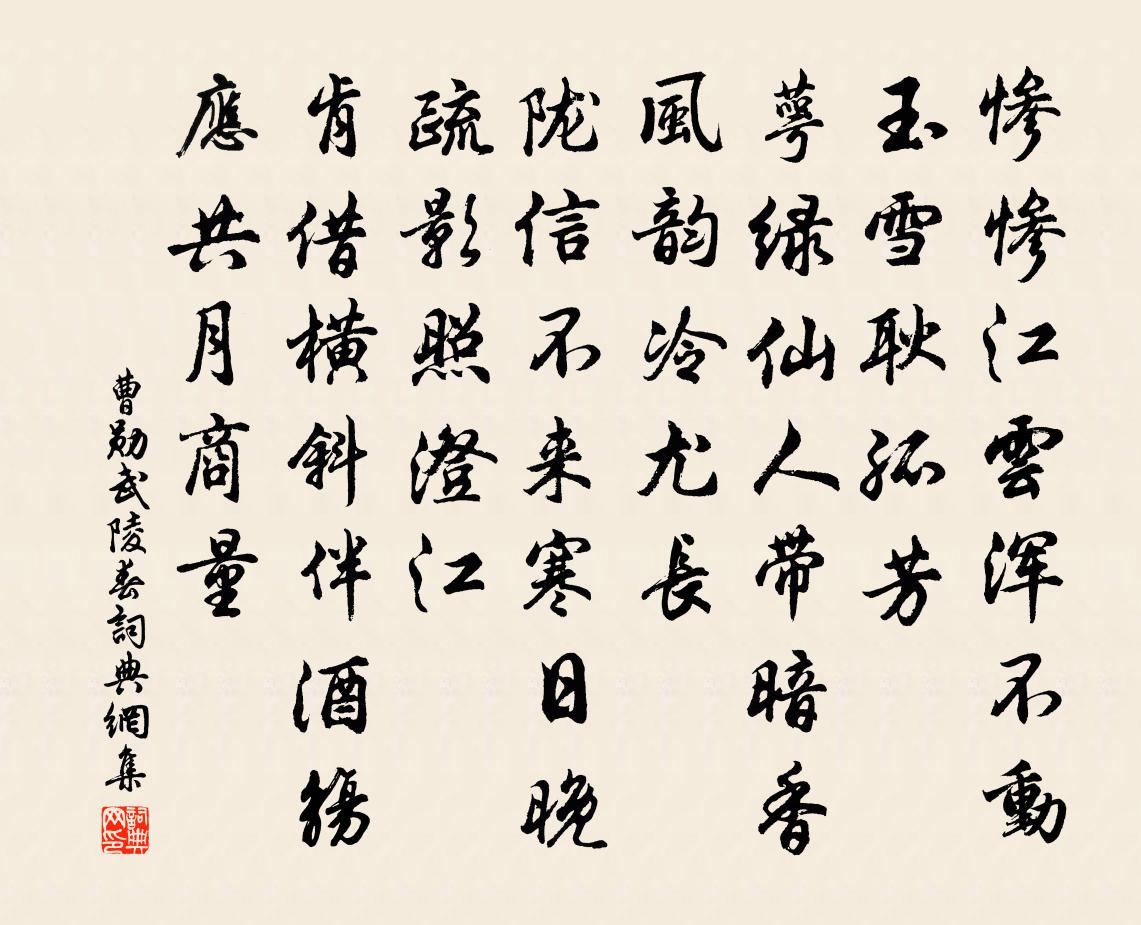 惨惨江雲渾不動
玉雪耿孤芳
萼绿仙人带暗香
風韵冷尤長
陇信不来寒日晚
疏影照澄江
肯借横斜伴酒觞
應共月商量
曹勋武陵春詞典網集
詞典网印